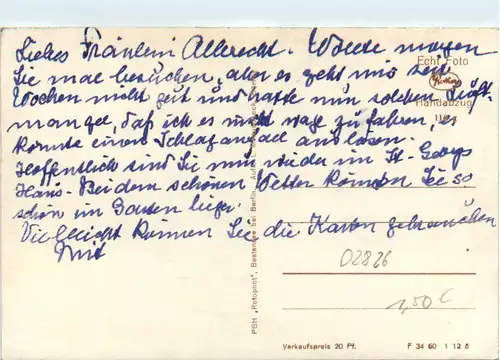 Liebes Fräulein Albrecht. Wollte morgen
Sie mal besuchen, aber es geht mir seit
Wochen nicht gut und hatte nun solchen Luft-
mangel, daß ich es nicht wage zu fahren, es
könnte einen Schlaganfall auslösen.
Hoffentlich sind Sie nun wieder im St. Georgs
Haus. Bei dem schönen Wetter können Sie so
schön im Garten liegen.
Vielleicht können Sie die Karten gebrauchen
Mit
Echt Foto
Handabzug
PGH „Rotophot", Bestensee bei Berlin,
02826
1,50 €
Verkaufspreis 20 Pf.
F 34 60 1 12 5